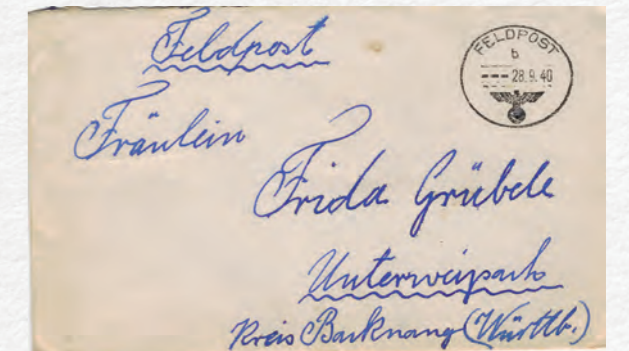 Feldpost
FELDPOST
b
--- 28.9.40
Fräulein
Frida Grübele
Unterweißach
Kreis Backnang (Württb.)